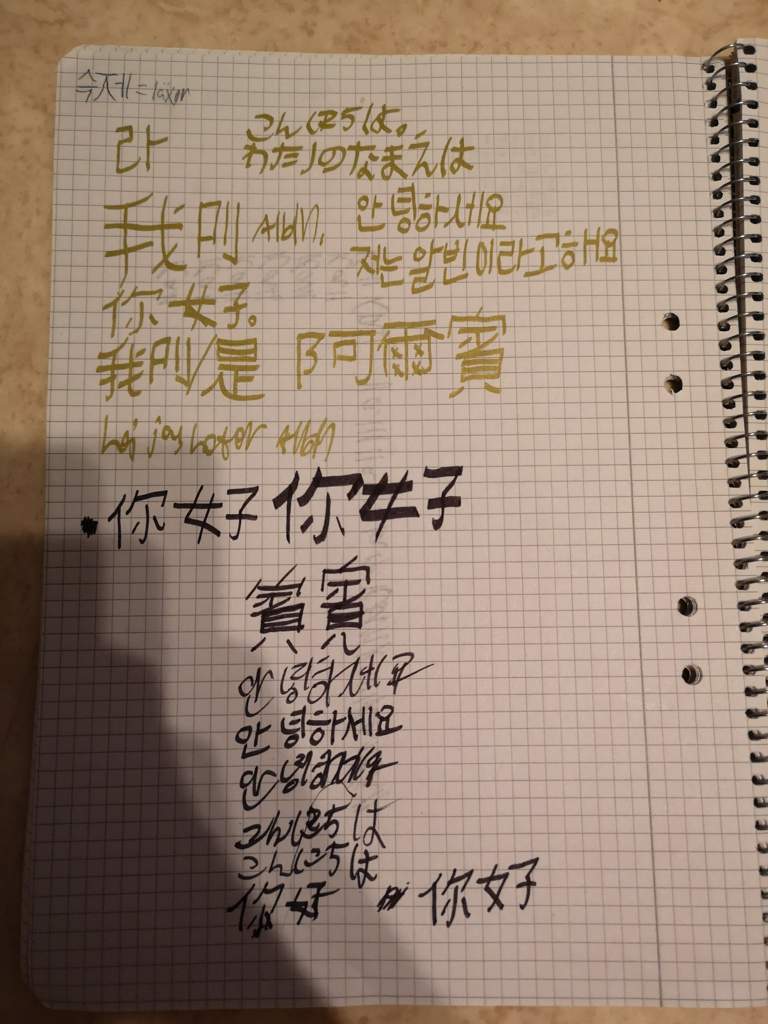 수제 = läxor
라
こんにちは。
わたしのなまえは
我叫 Albin.
안녕하세요
저는알빈이라고해요
你好。
我叫是 阿爾賓
hej jag heter Albin
你好 你好
賓 賓
안녕하세요
안녕하세요
안녕하세요
こんにちは
こんにちは
你好 你好